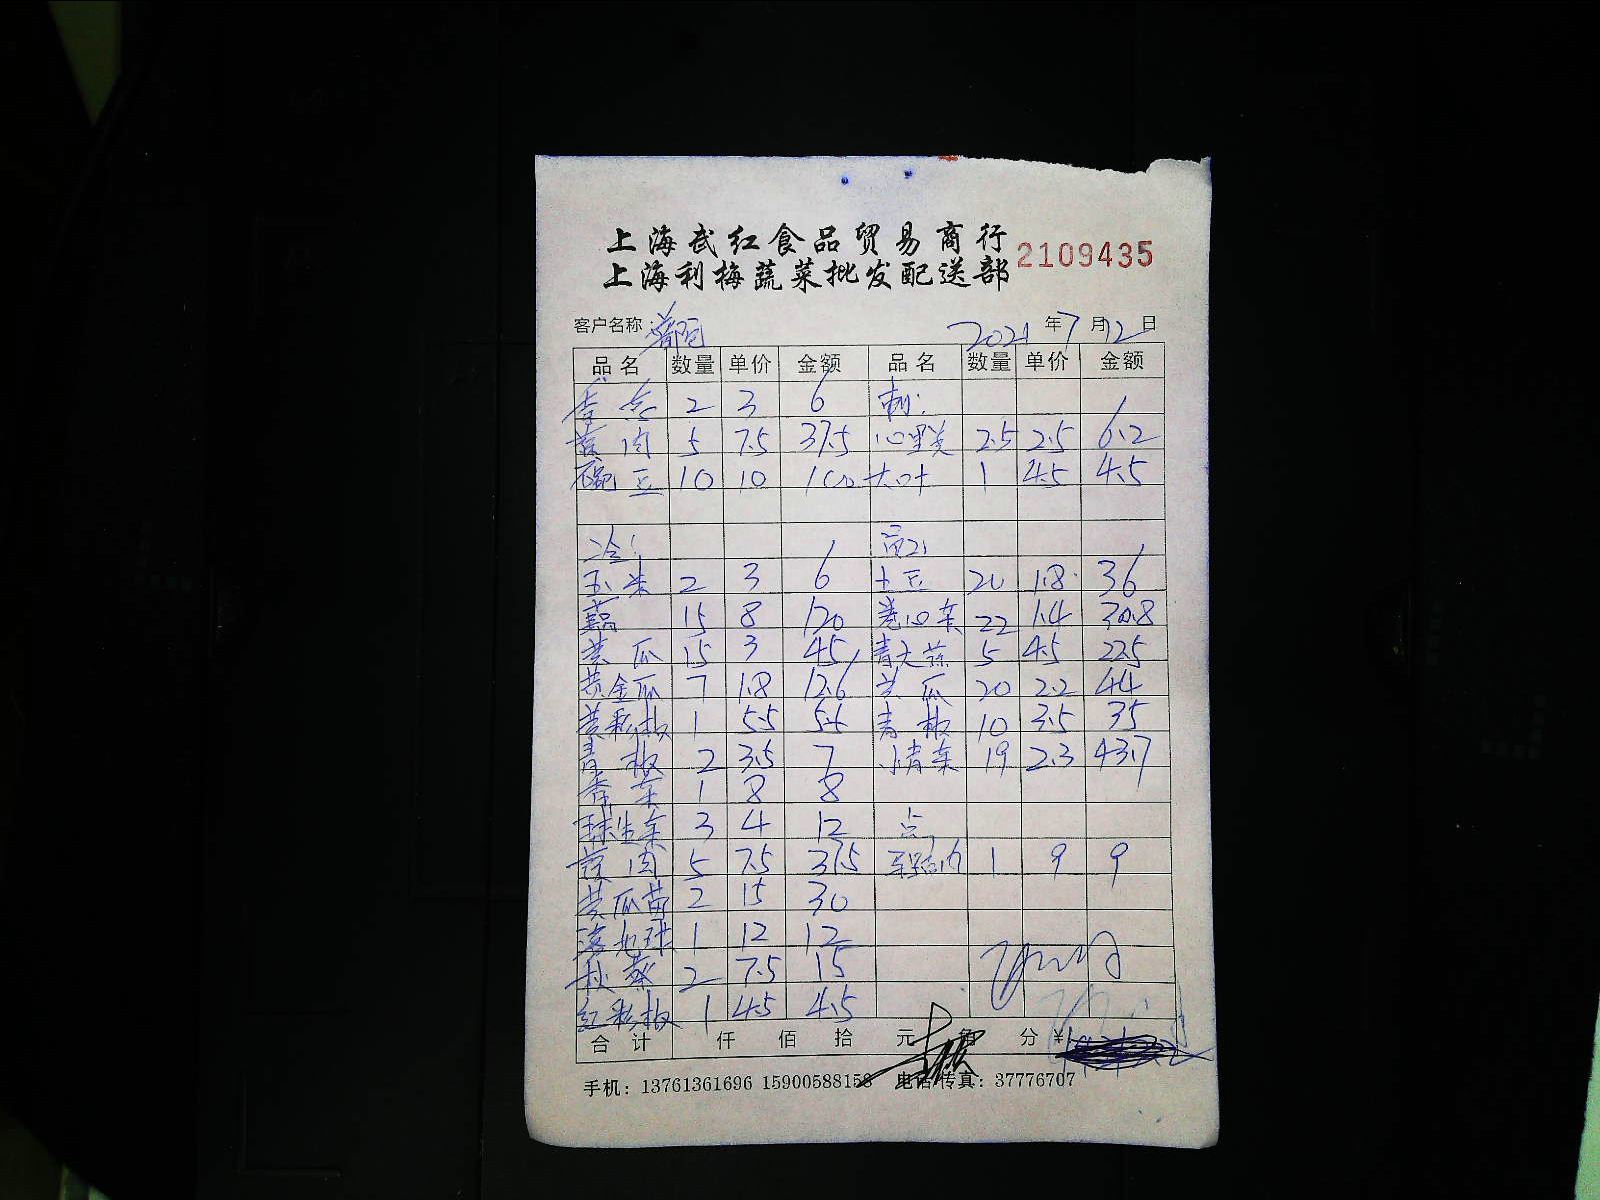 上海武红食品贸易商行
2109435
上海利梅蔬菜批发配送部
客户名称: 2021年7月12日
品名 数量 单价 金额 品名 数量 单价 金额
香葱 2 3 6 刺:
蒜肉 5 7.5 37.5 心里美 2.5 2.5 6.2
豌豆 10 10 100 大叶 1 4.5 4.5
冷:
玉米 2 3 6 土豆 20 1.8 36
藕 15 8 120 卷心菜 22 1.4 30.8
黄瓜 15 3 45 青大蒜 5 4.5 22.5
黄金瓜 7 1.8 12.6 黄瓜 20 2.2 44
黄彩椒 1 5.5 5.5 青椒 10 3.5 35
青椒 2 3.5 7 小青菜 19 2.3 43.7
香菜 1 8 8
球生菜 3 4 12 点
蒜肉 5 7.5 37.5 1 9 9
黄瓜苗 2 15 30
1 12 12
秋葵 2 7.5 15
红彩椒 1 4.5 4.5
合计 仟 佰 拾 元 角 分 ¥
手机: 13761361696 15900588158 电话/传真: 37776707